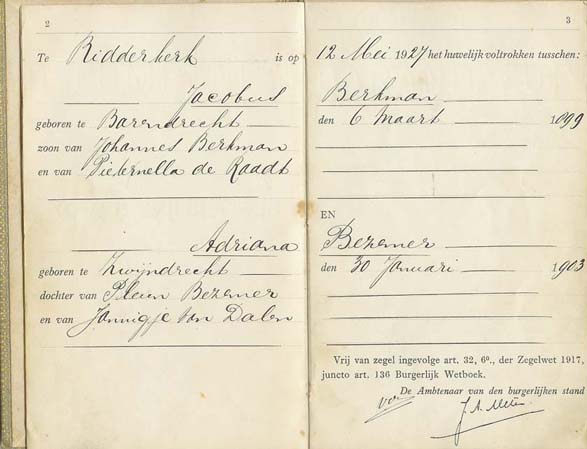 2
Te Ridderkerk is op
Jacobus
geboren te Barendrecht
zoon van Johannes Berkman
en van Pieternella de Raadt
Adriana
geboren te Zwijndrecht
dochter van Pleun Bezemer
en van Jannigje van Dalen
3
12 Mei 1927 het huwelijk voltrokken tusschen:
Berkman
den 6 Maart 1899
EN
Bezemer
den 30 Januari 1903
Vrij van zegel ingevolge art. 32, 6º., der Zegelwet 1917,
juncto art. 136 Burgerlijk Wetboek.
De Ambtenaar van den burgerlijken stand
J. A.